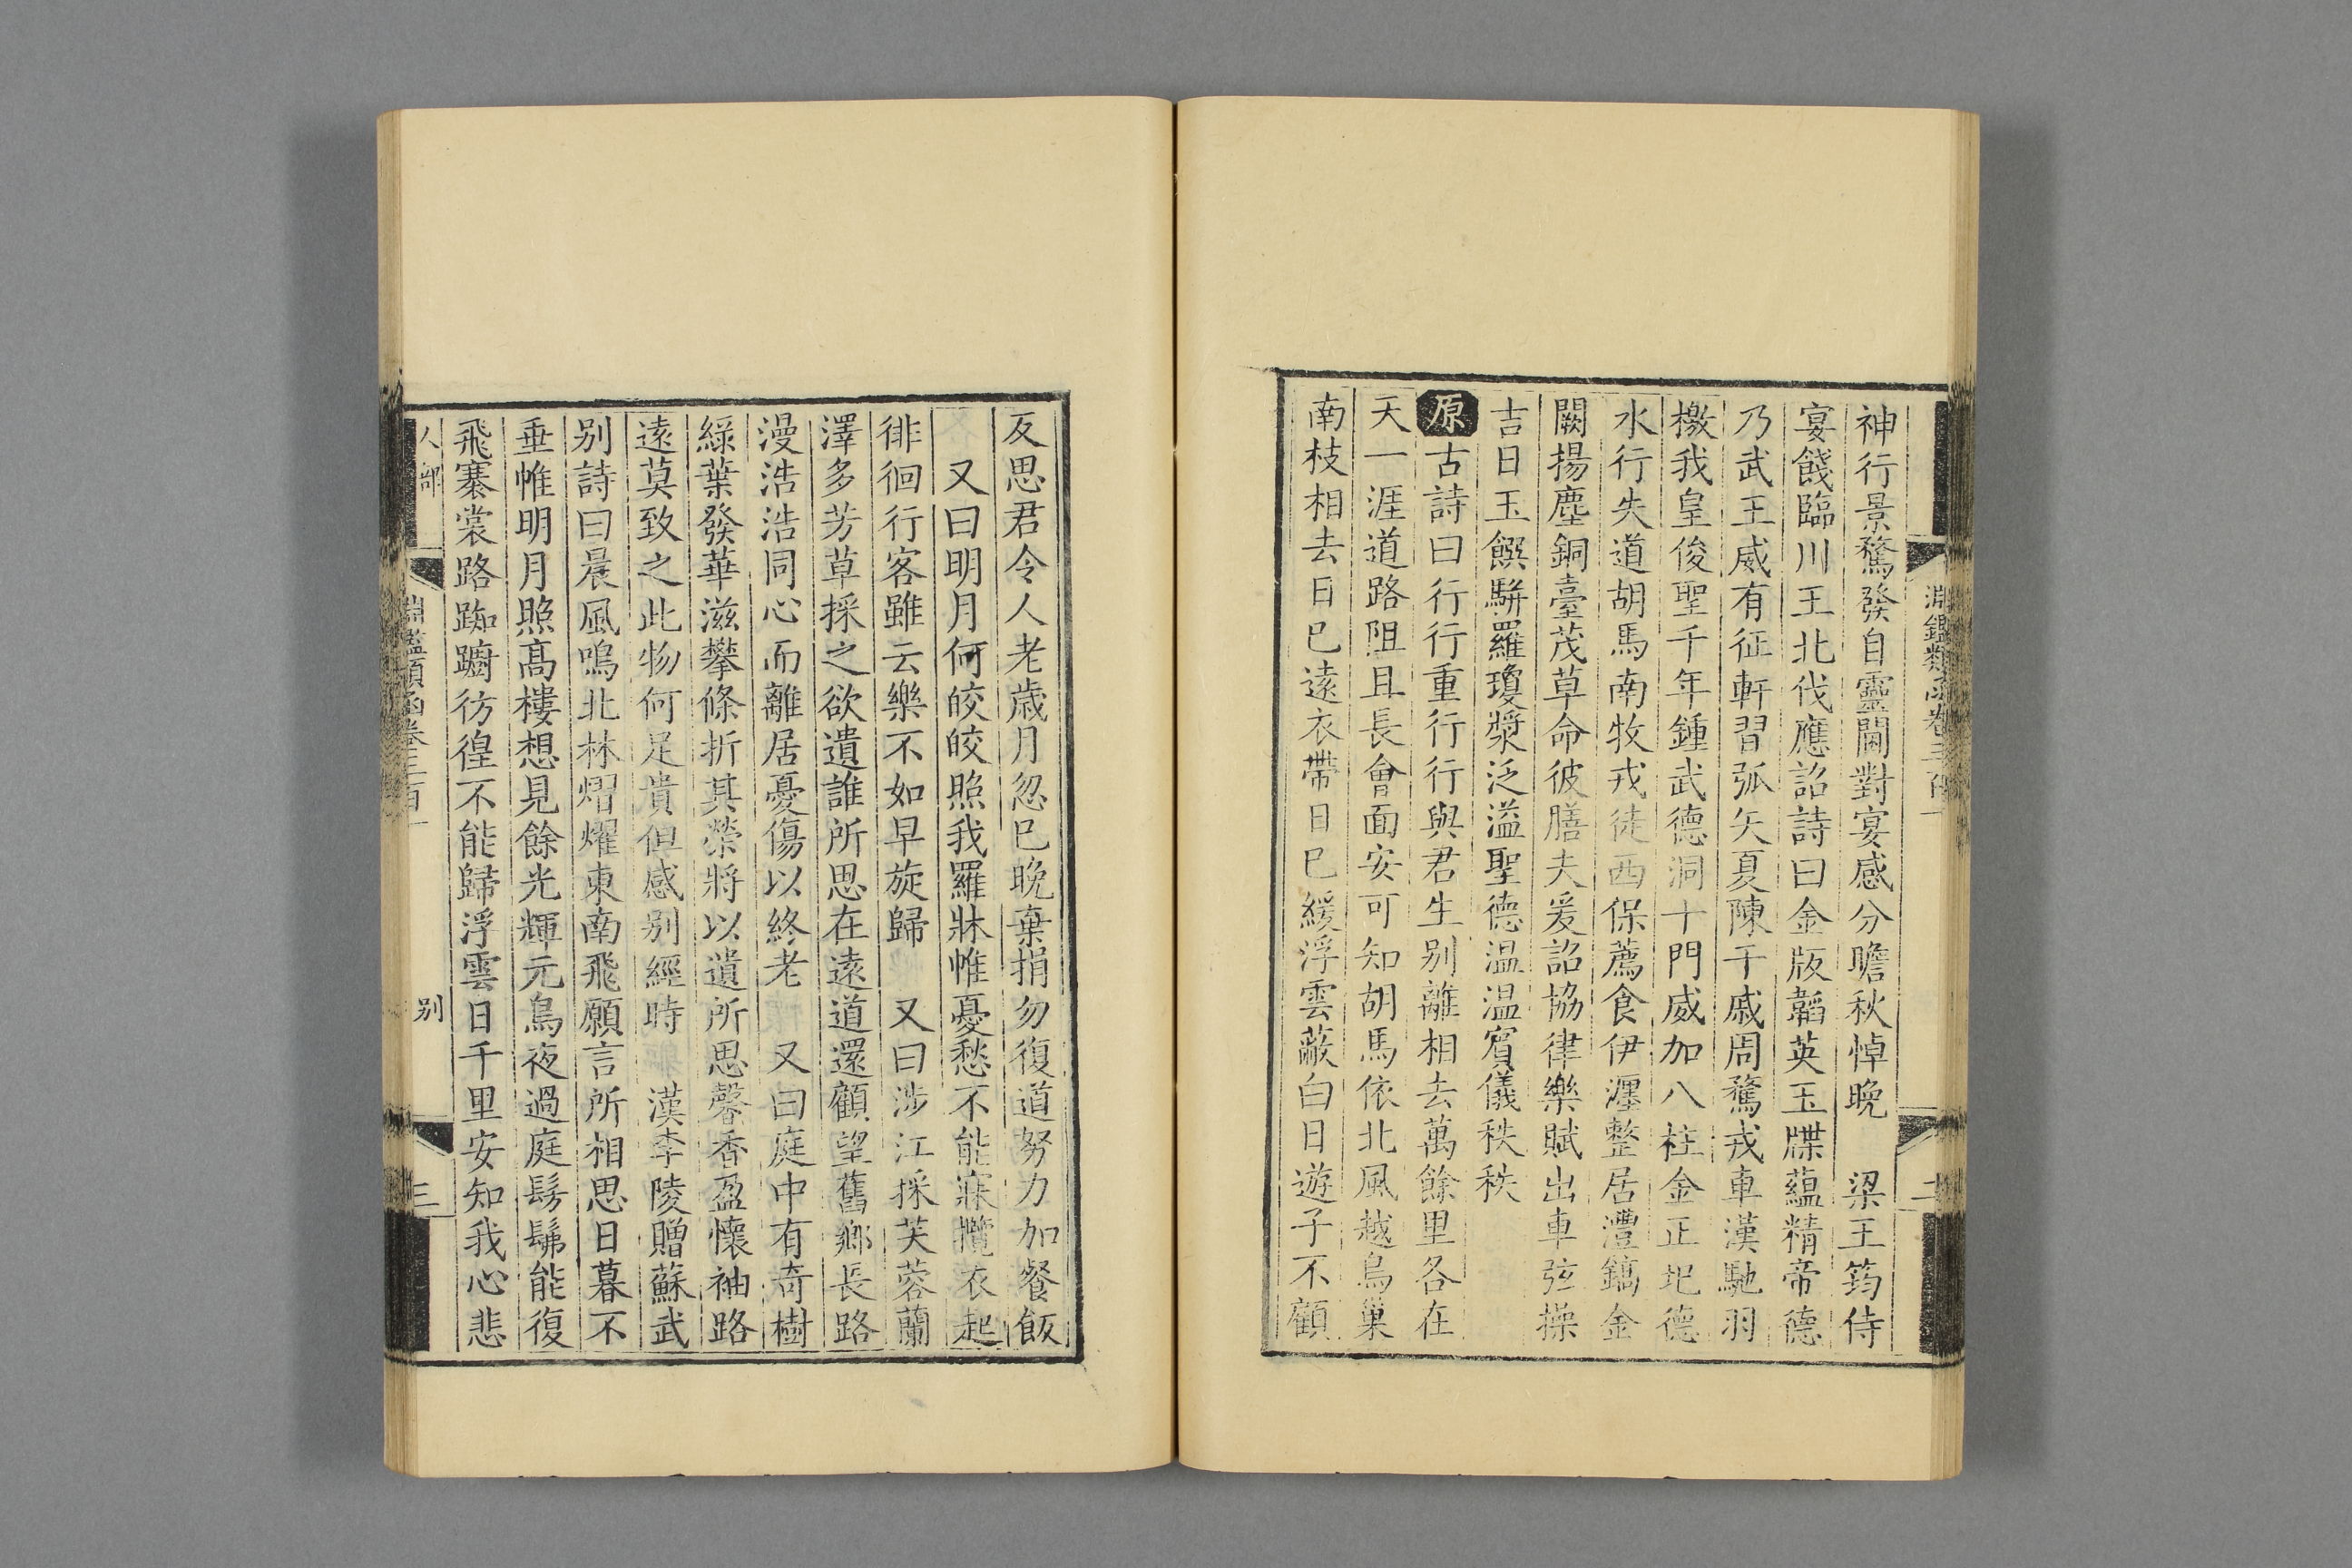 淵鑑類函卷三百一
二
神行景騖發自靈閫對宴感分瞻秋悼晚　梁王筠侍
宴餞臨川王北伐應詔詩曰金版韜英玉牒蘊精帝德
乃武王威有征軒習弧矢夏陳干戚周騖戎車漢馳羽
檄我皇俊聖千年鍾武德洞十門威加八柱金正圯德
水行失道胡馬南牧戎徒西保薦食伊瀍整居灃鎬金
闕揚塵銅臺茂草命彼膳夫爰詔協律樂賦出車弦操
吉日玉饌駢羅瓊漿泛溢聖德温温賓儀秩秩
原古詩曰行行重行行與君生别離相去萬餘里各在
天一涯道路阻且長會面安可知胡馬依北風越鳥巢
南枝相去日已遠衣帶日已緩浮雲蔽白日遊子不顧
反思君令人老歲月忽已晚棄捐勿復道努力加餐飯
又曰明月何皎皎照我羅牀帷憂愁不能寐攬衣起
徘徊行客雖云樂不如早旋歸　又曰涉江採芙蓉蘭
澤多芳草採之欲遺誰所思在遠道還顧望舊鄉長路
漫浩浩同心而離居憂傷以終老　又曰庭中有奇樹
綠葉發華滋攀條折其榮將以遺所思馨香盈懷袖路
遠莫致之此物何足貴但感别經時　漢李陵贈蘇武
别詩曰晨風鳴北林熠燿東南飛願言所相思日暮不
垂帷明月照高樓想見餘光輝元鳥夜過庭髣髴能復
飛褰裳路踟躕彷徨不能歸浮雲日千里安知我心悲
人部
淵鑑類函卷三百一
别
三